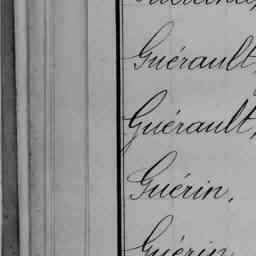 Guérault,
Guérault,
Guérin.
Guérin